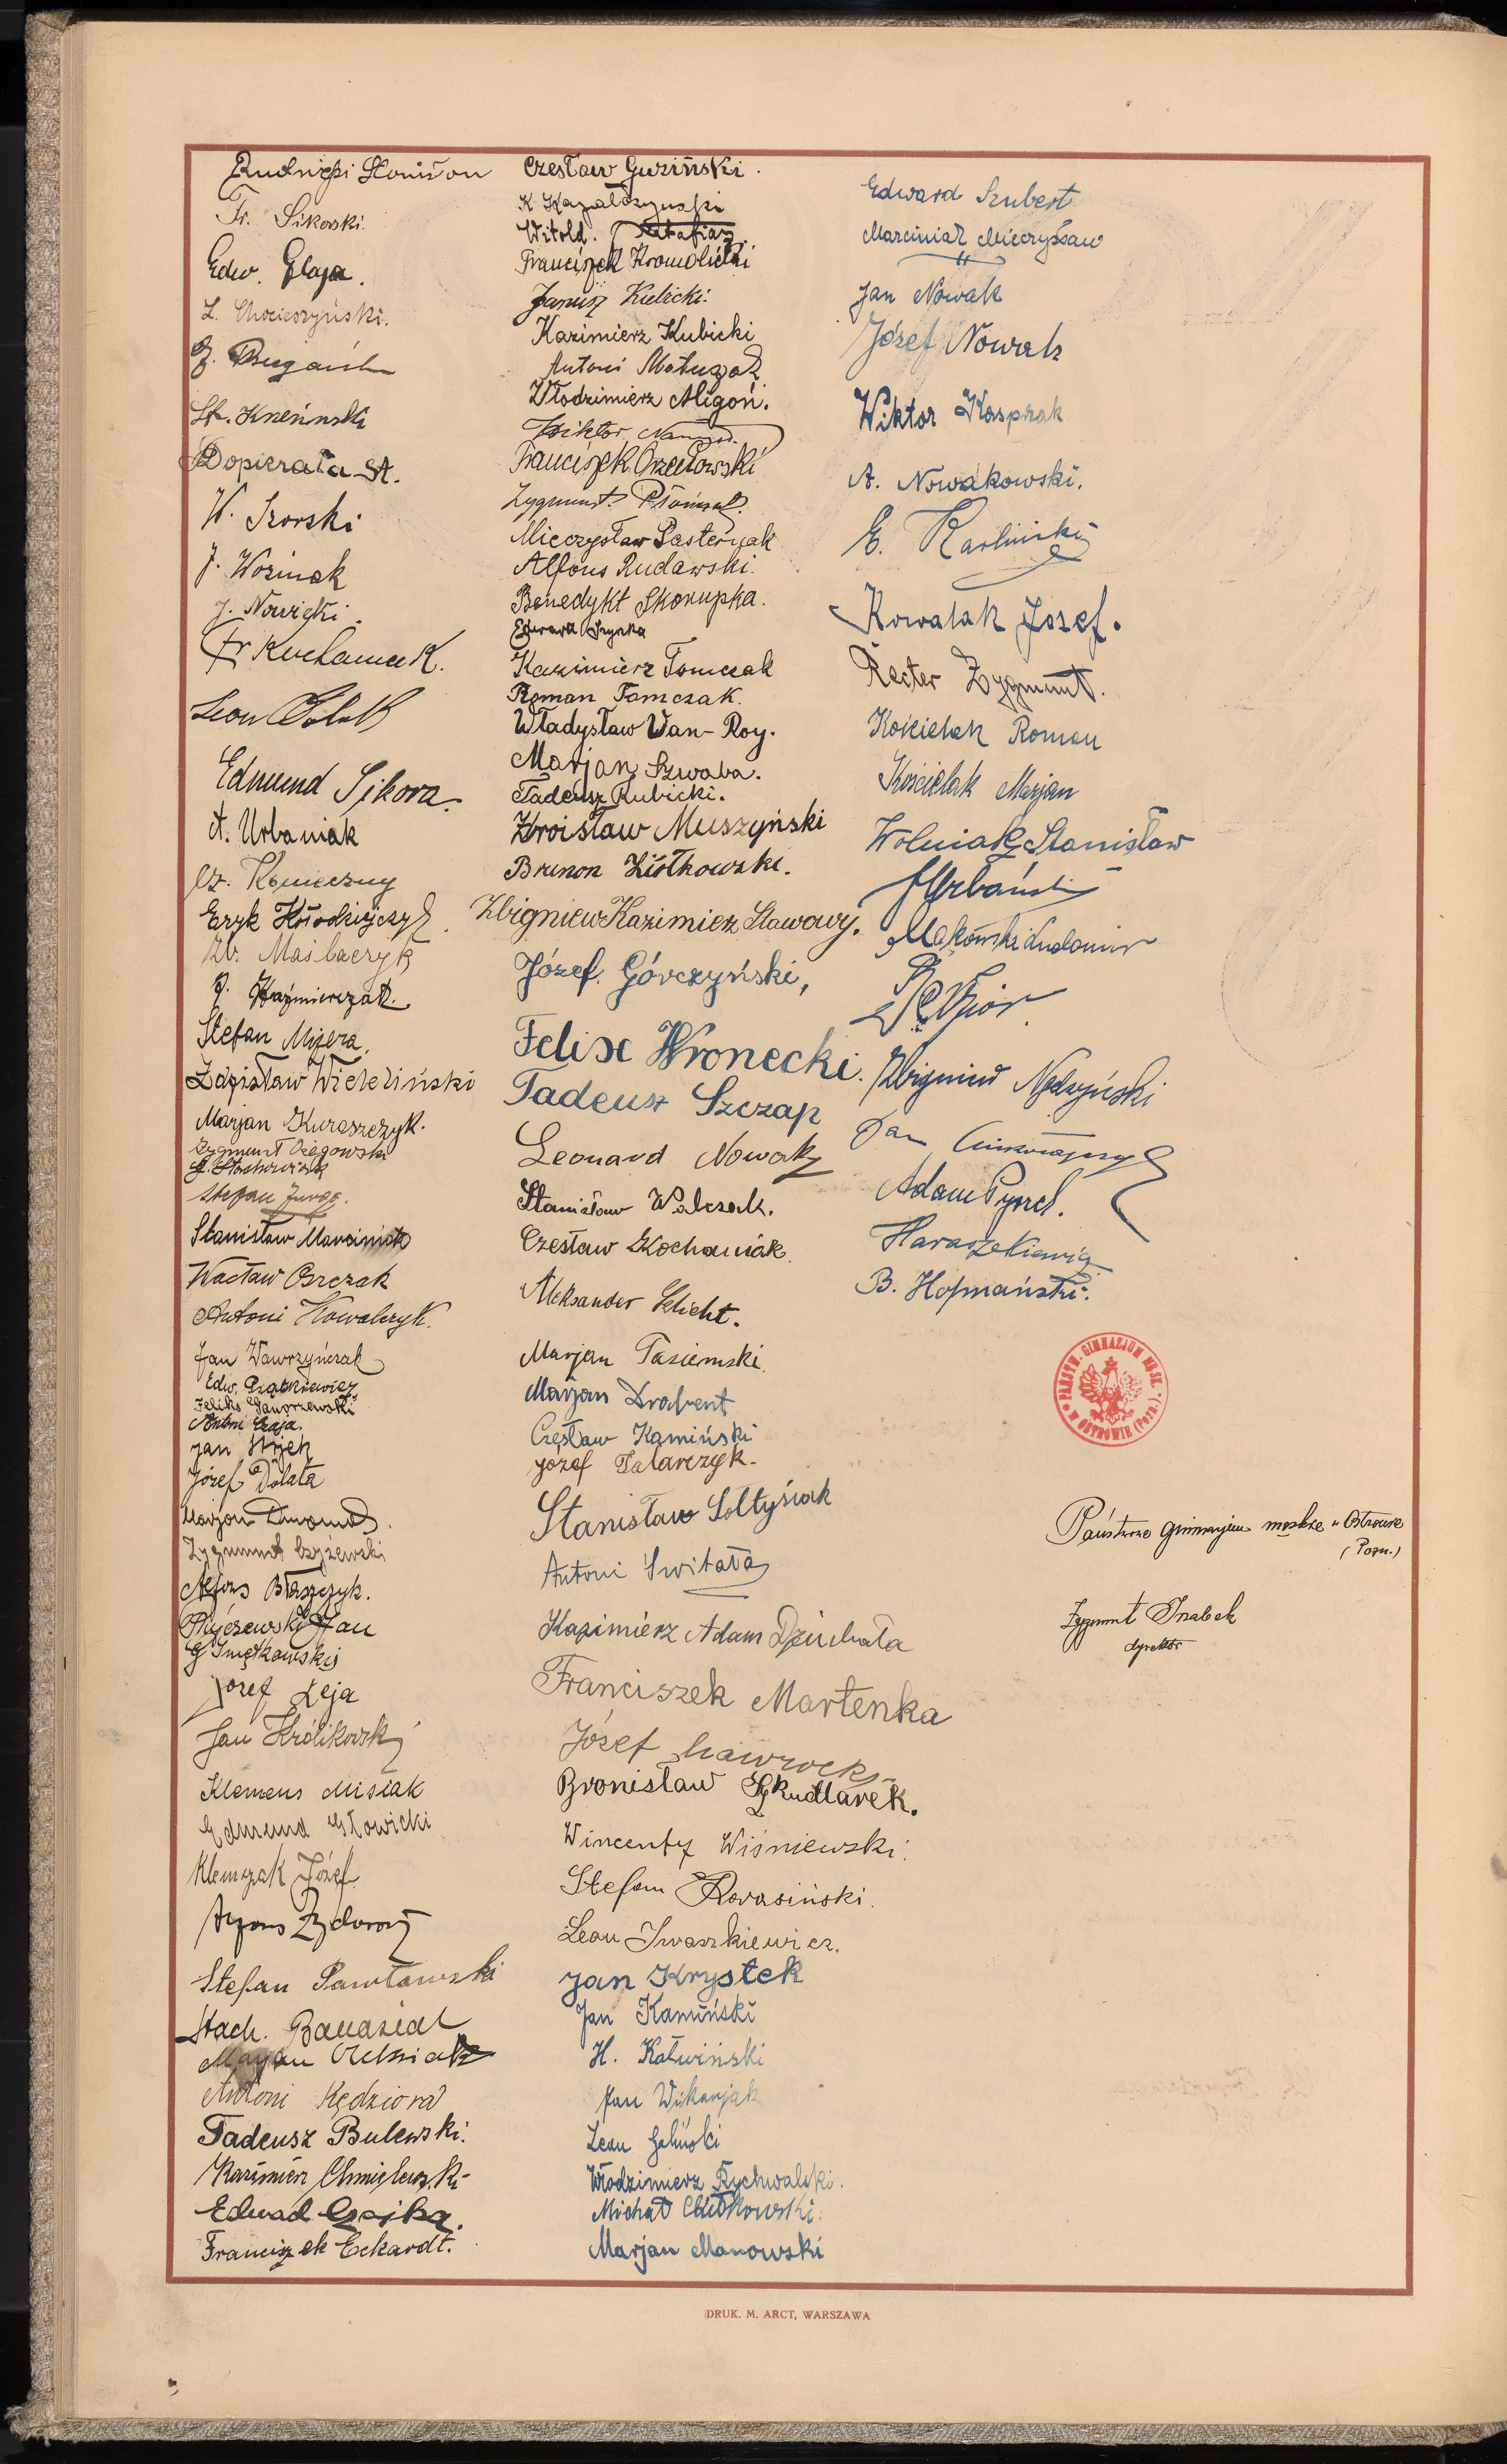 Rudnicki
Fr. Sikorski.
Edw. Glapa.
L. Chocieszyński.
J.
St.
Dopierała St.
W.
J. Woźniak
J. Nowicki.
Fr
Leon
Edmund Sikora.
A. Urbaniak
Cz. Konieczny
Eryk
Maślaczyk
J. Kaźmierczak.
Stefan Mizera.
Zdzisław Wieliński
Marjan Kuraszczyk.
Zygmunt Ożegowski
Stachowiak
Stefan Jurga.
Stanisław Marciniak
Wacław
Antoni Kowalczyk.
Jan Wawrzyńczak
Edw. Piątkiewicz
Feliks Gaworzewski
Antoni Czaja.
Jan
Józef Dolata
Marjan
Zygmunt Czyżewski
Alfons Błaszczyk.
Jan
Józef Leja
Jan Królikowski
Klemens Misiak
Edmund Słowicki
Klemczak Józef.
Alfons
Stefan Pawłowski
Stach. Banasiak
Marjan
Antoni Kędziora
Tadeusz Bulewski.
Kazimierz Chmielewski
Edward Czajka.
Franciszek Eckardt.
Czesław Guziński.
K
Witold.
Franciszek Kromolicki
Janusz Kielicki.
Kazimierz Kubicki
Antoni Matuszak
Włodzimierz Migoń.
Wiktor
Franciszek Orzełowski
Zygmunt
Mieczysław Pasternak
Alfons Rudawski.
Benedykt Skorupka.
Edward
Kazimierz Tomczak
Roman Tomczak.
Władysław Van-Roy.
Marjan Szwaba.
Tadeusz Rubicki.
Zdroisław Muszyński
Brunon Ziółkowski.
Zbigniew Kazimierz Stawowy.
Józef Górczyński,
Felix Wronecki.
Tadeusz Szczap
Leonard Nowak
Stanisław Walczak.
Czesław Kochaniak.
Aleksander Schicht.
Marjan Tasiemski.
Marjan Drabent
Czesław Kamiński
Józef Talarczyk.
Stanisław Sołtysiak
Antoni Switała
Kazimierz Adam Dziubała
Franciszek Martenka
Józef Nawrocki
Bronisław Szkudlarek.
Wincenty Wiśniewski.
Stefan
Leon Iwaszkiewicz.
Jan Krystek
Jan Kamiński
H. Kałwiński
Jan Wikarjak
Leon
Włodzimierz Rychwalski.
Michał Ciułkowski.
Marjan Manowski
Edward Szubert
Marciniak Mieczysław
Jan Nowak
Józef Nowak
Wiktor Kasprzak
A. Nowakowski.
E. Karliński
Kowalak Józef.
Recter Zygmunt.
Kościelak Roman
Kościelak Marjan
Wolniak Stanisław
Urbański
Makowski Ludomir
Zbigniew Nędzyński
Jan
Adam
Haraszkiewicz
B. Hofmański.
PAŃSTW. GIMNAZJUM MĘSK.
W OSTROWIE (Pozn.)
Państwowe gimnazjum męskie w Ostrowie
(Pozn.)
Zygmunt
dyrektor
DRUK. M. ARCT, WARSZAWA